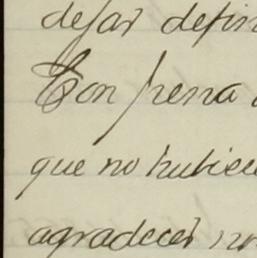 dejar defin
Con pena
que no hubie
agradecer